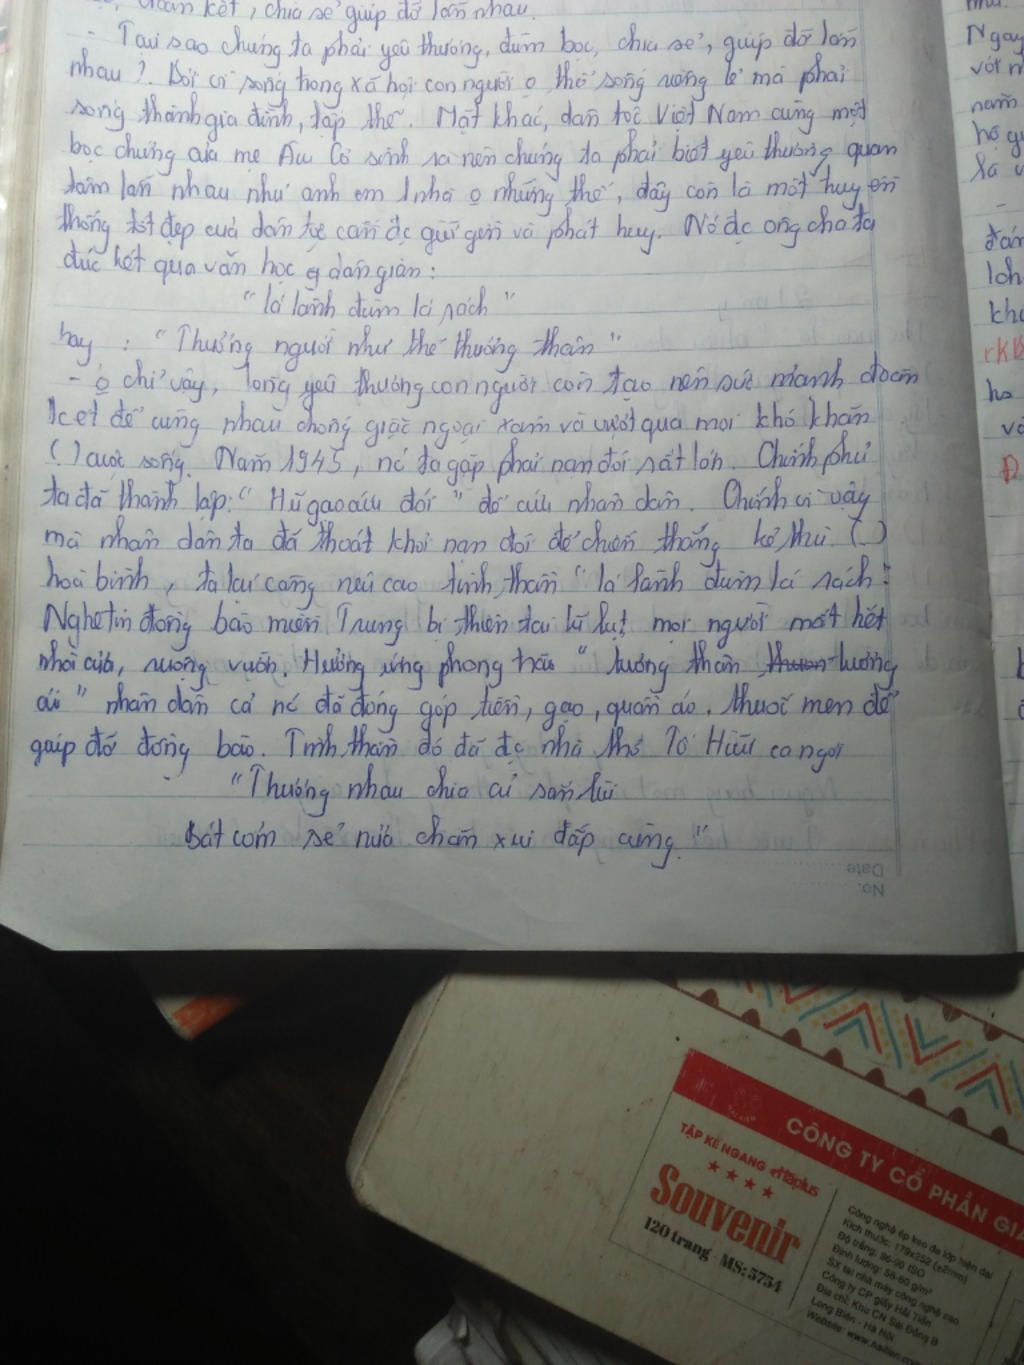 đoàn kết, chia sẻ giúp đỡ lẫn nhau.
- Tại sao chúng ta phải yêu thương, đùm bọc, chia sẻ, giúp đỡ lẫn
nhau? Bởi vì sống trong xã hội con người o thể sống riêng lẻ mà phải
sống thành gia đình, tập thể. Mặt khác, dân tộc Việt Nam cùng một
bọc chứng của mẹ Âu Cơ sinh ra nên chúng ta phải biết yêu thương quan
tâm lẫn nhau như anh em 1 nhà o những thế, đấy còn là một truyền
thống tốt đẹp của dân tộc cần đc giữ gìn và phát huy. Nó đc ông cha ta
đúc kết qua văn học dân gian:
"lá lành đùm lá rách"
hay : "Thương người như thể thương thân"
- o chỉ vậy, lòng yêu thương con người còn tạo nên sức mạnh đoàn
kết để cùng nhau chống giặc ngoại xâm và vượt qua mọi khó khăn
(.) cuộc sống. Năm 1945, nc ta gặp phải nạn đói rất lớn. Chính phủ
ta đã thành lập: "Hũ gạo cứu đói" để cứu nhân dân. Chính vì vậy
mà nhân dân ta đã thoát khỏi nạn đói để chiến thắng kẻ thù. (.)
hoà bình, ta lại càng nêu cao tinh thần "lá lành đùm lá rách".
Nghe tin đồng bào miền Trung bị thiên tai lũ lụt mọi người mất hết
nhà cửa, ruộng vườn. Hưởng ứng phong trào "tương thân tương
ái" nhân dân cả nc đã đóng góp tiền, gạo, quần áo, thuốc men để
giúp đỡ đồng bào. Tinh thần đó đã đc nhà thơ Tố Hữu ca ngợi
"Thương nhau chia củ sắn lùi
Bát cơm sẻ nửa chăn xui đắp cùng."
Date
No.
Ngay
năm
khu
CÔNG TY CỔ PHẦN GIẤ
TẬP KẺ NGANG
Souvenir
120 trang - MS: 5754
Công nghệ ép keo đa lớp hiện đại
Kích thước: 179x252 (±2mm)
Độ trắng: 86-90 ISO
Định lượng: 58-60 g/m²
SX tại nhà máy công nghệ cao
Công ty CP giấy Hải Tiến
Địa chỉ: Khu CN Sài Đồng B
Long Biên - Hà Nội